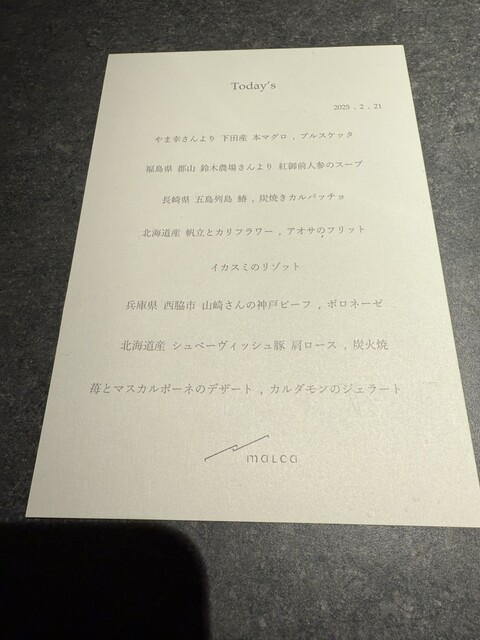 Today's
2025 . 2 . 21
やま幸さんより 下田産 本マグロ , ブルスケッタ
福島県 郡山 鈴木農場さんより 紅御前人参のスープ
長崎県 五島列島 鰆 , 炭焼きカルパッチョ
北海道産 帆立とカリフラワー , アオサのフリット
イカスミのリゾット
兵庫県 西脇市 山崎さんの神戸ビーフ , ボロネーゼ
北海道産 シュベーヴィッシュ豚 肩ロース , 炭火焼
苺とマスカルポーネのデザート , カルダモンのジェラート
maLca